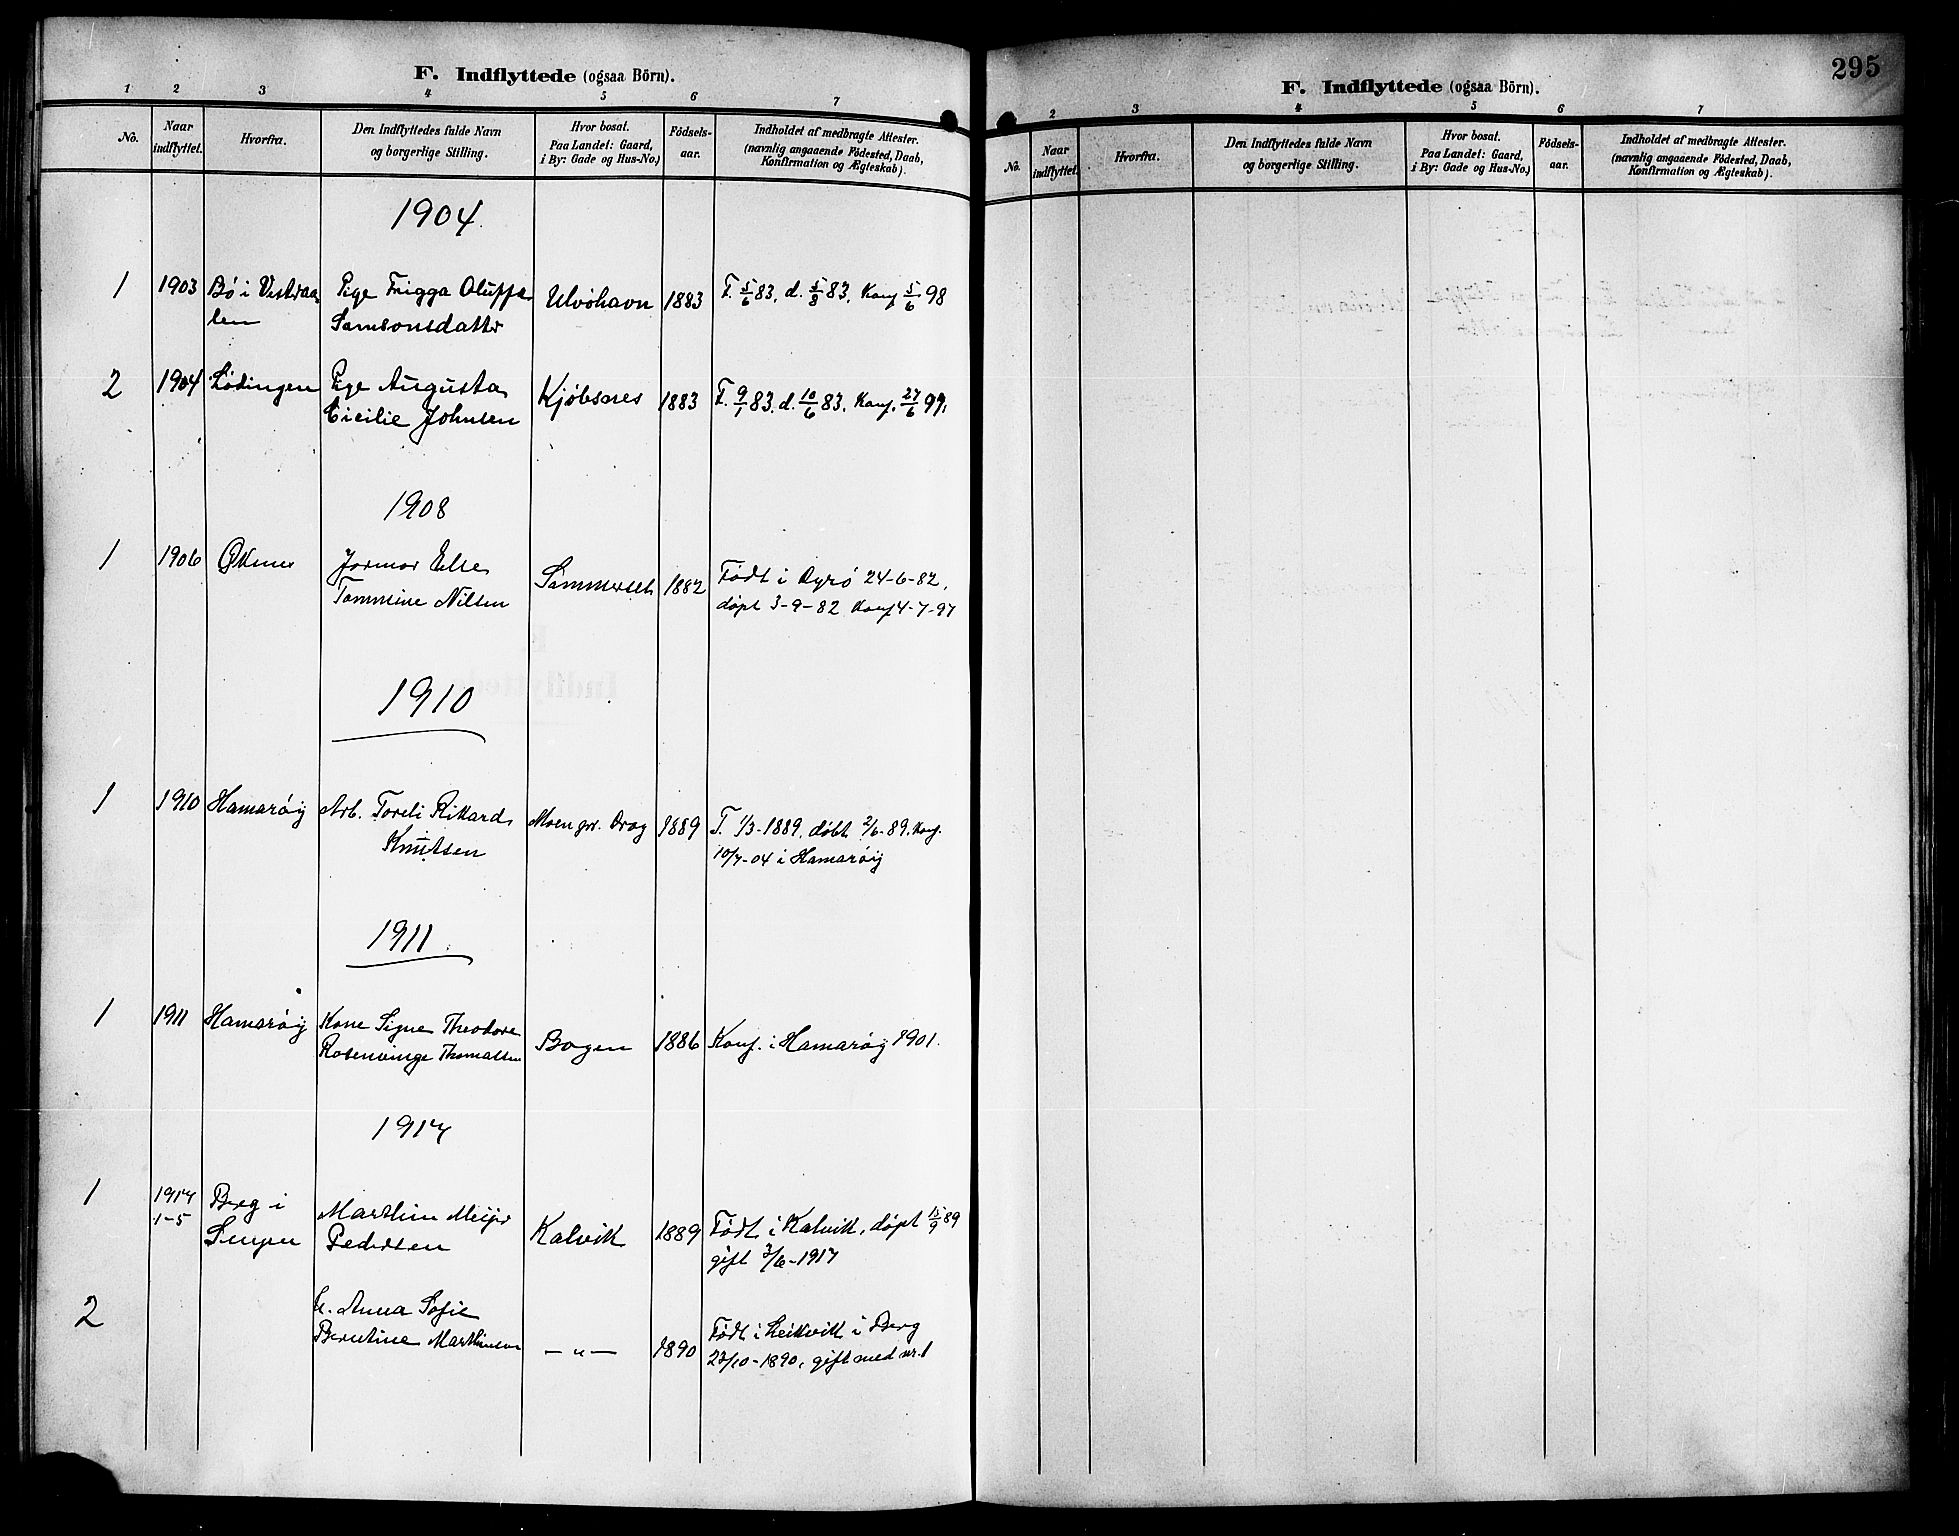 F. Indflyttede (ogsaa Börn).
1 2 3 4 5 6 7
No.
Naar
indflyttet.
Hvorfra.
Den Indflyttedes fulde Navn
og borgerlige Stilling.
Hvor bosat.
Paa Landet: Gaard,
i By: Gade og Hus-No.)
Födsels-
aar.
Indholdet af medbragte Attester.
(navnlig angaaende Födested, Daab,
Konfirmation og Ægteskab).
1904.
1 1903 Bö i Vesteraa- Pige Frigga Oluffa Ulvöhavn 1883 F. 5/6 83. d. 5/8 83. Konf 5/6 98
len Samsonsdatter
2 1904 Lödingen Pige Augusta Kjöbsnes 1883 F. 9/1 83. d. 10/6 83. Konf. 27/6 99.
Cicilie Johnsen
1908
1 1906 Øksnes Jormor Else Sommerset 1882 Født i Dyrö 24-6-82,
Tommine Nilsen døpt 3-9-82 Konf 4-7-97
1910
1 1910 Hamaröy Arb. Toreli Rikard Moen pr. Drag 1889 F. 1/3-1889. döbt 2/6-89. Konf.
Knutsen 10/7-04 i Hamaröy
1911.
1 1911 Hamaröy Kone Signe Theodore Bogen 1886 Konf. i Hamaröy 1901.
Rosenvinge Thomassen
1917
1 1917 Berg i Marthin Meijer Kalvik 1889 Født i Kalvik, døpt 15/9 89
1-5 Senjen Pedersen gift 3/6-1917
2 Anna Sofie
Berntine Marthinsen -"- 1890 Født i Leikvik i Berg
23/10-1890, gift med nr. 1
295
F. Indflyttede (ogsaa Börn).
2 3 4 5 6 7
No.
Naar
indflyttet.
Hvorfra.
Den Indflyttedes fulde Navn
og borgerlige Stilling.
Hvor bosat.
Paa Landet: Gaard,
i By: Gade og Hus-No.)
Födsels-
aar.
Indholdet af medbragte Attester.
(navnlig angaaende Födested, Daab,
Konfirmation og Ægteskab).